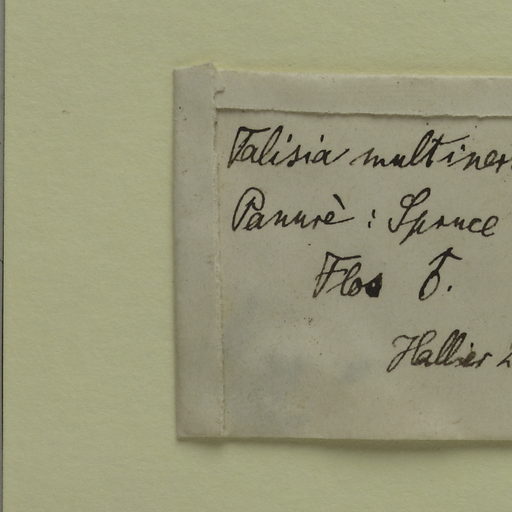 Talisia multiner
Panurè : Spruce
Flos ♂.
Hallier